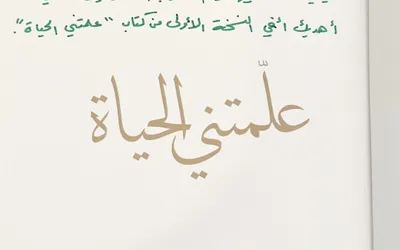 أهديك أخي النسخة الأولى من كتاب "علمتني الحياة".
علّمتني الحياة